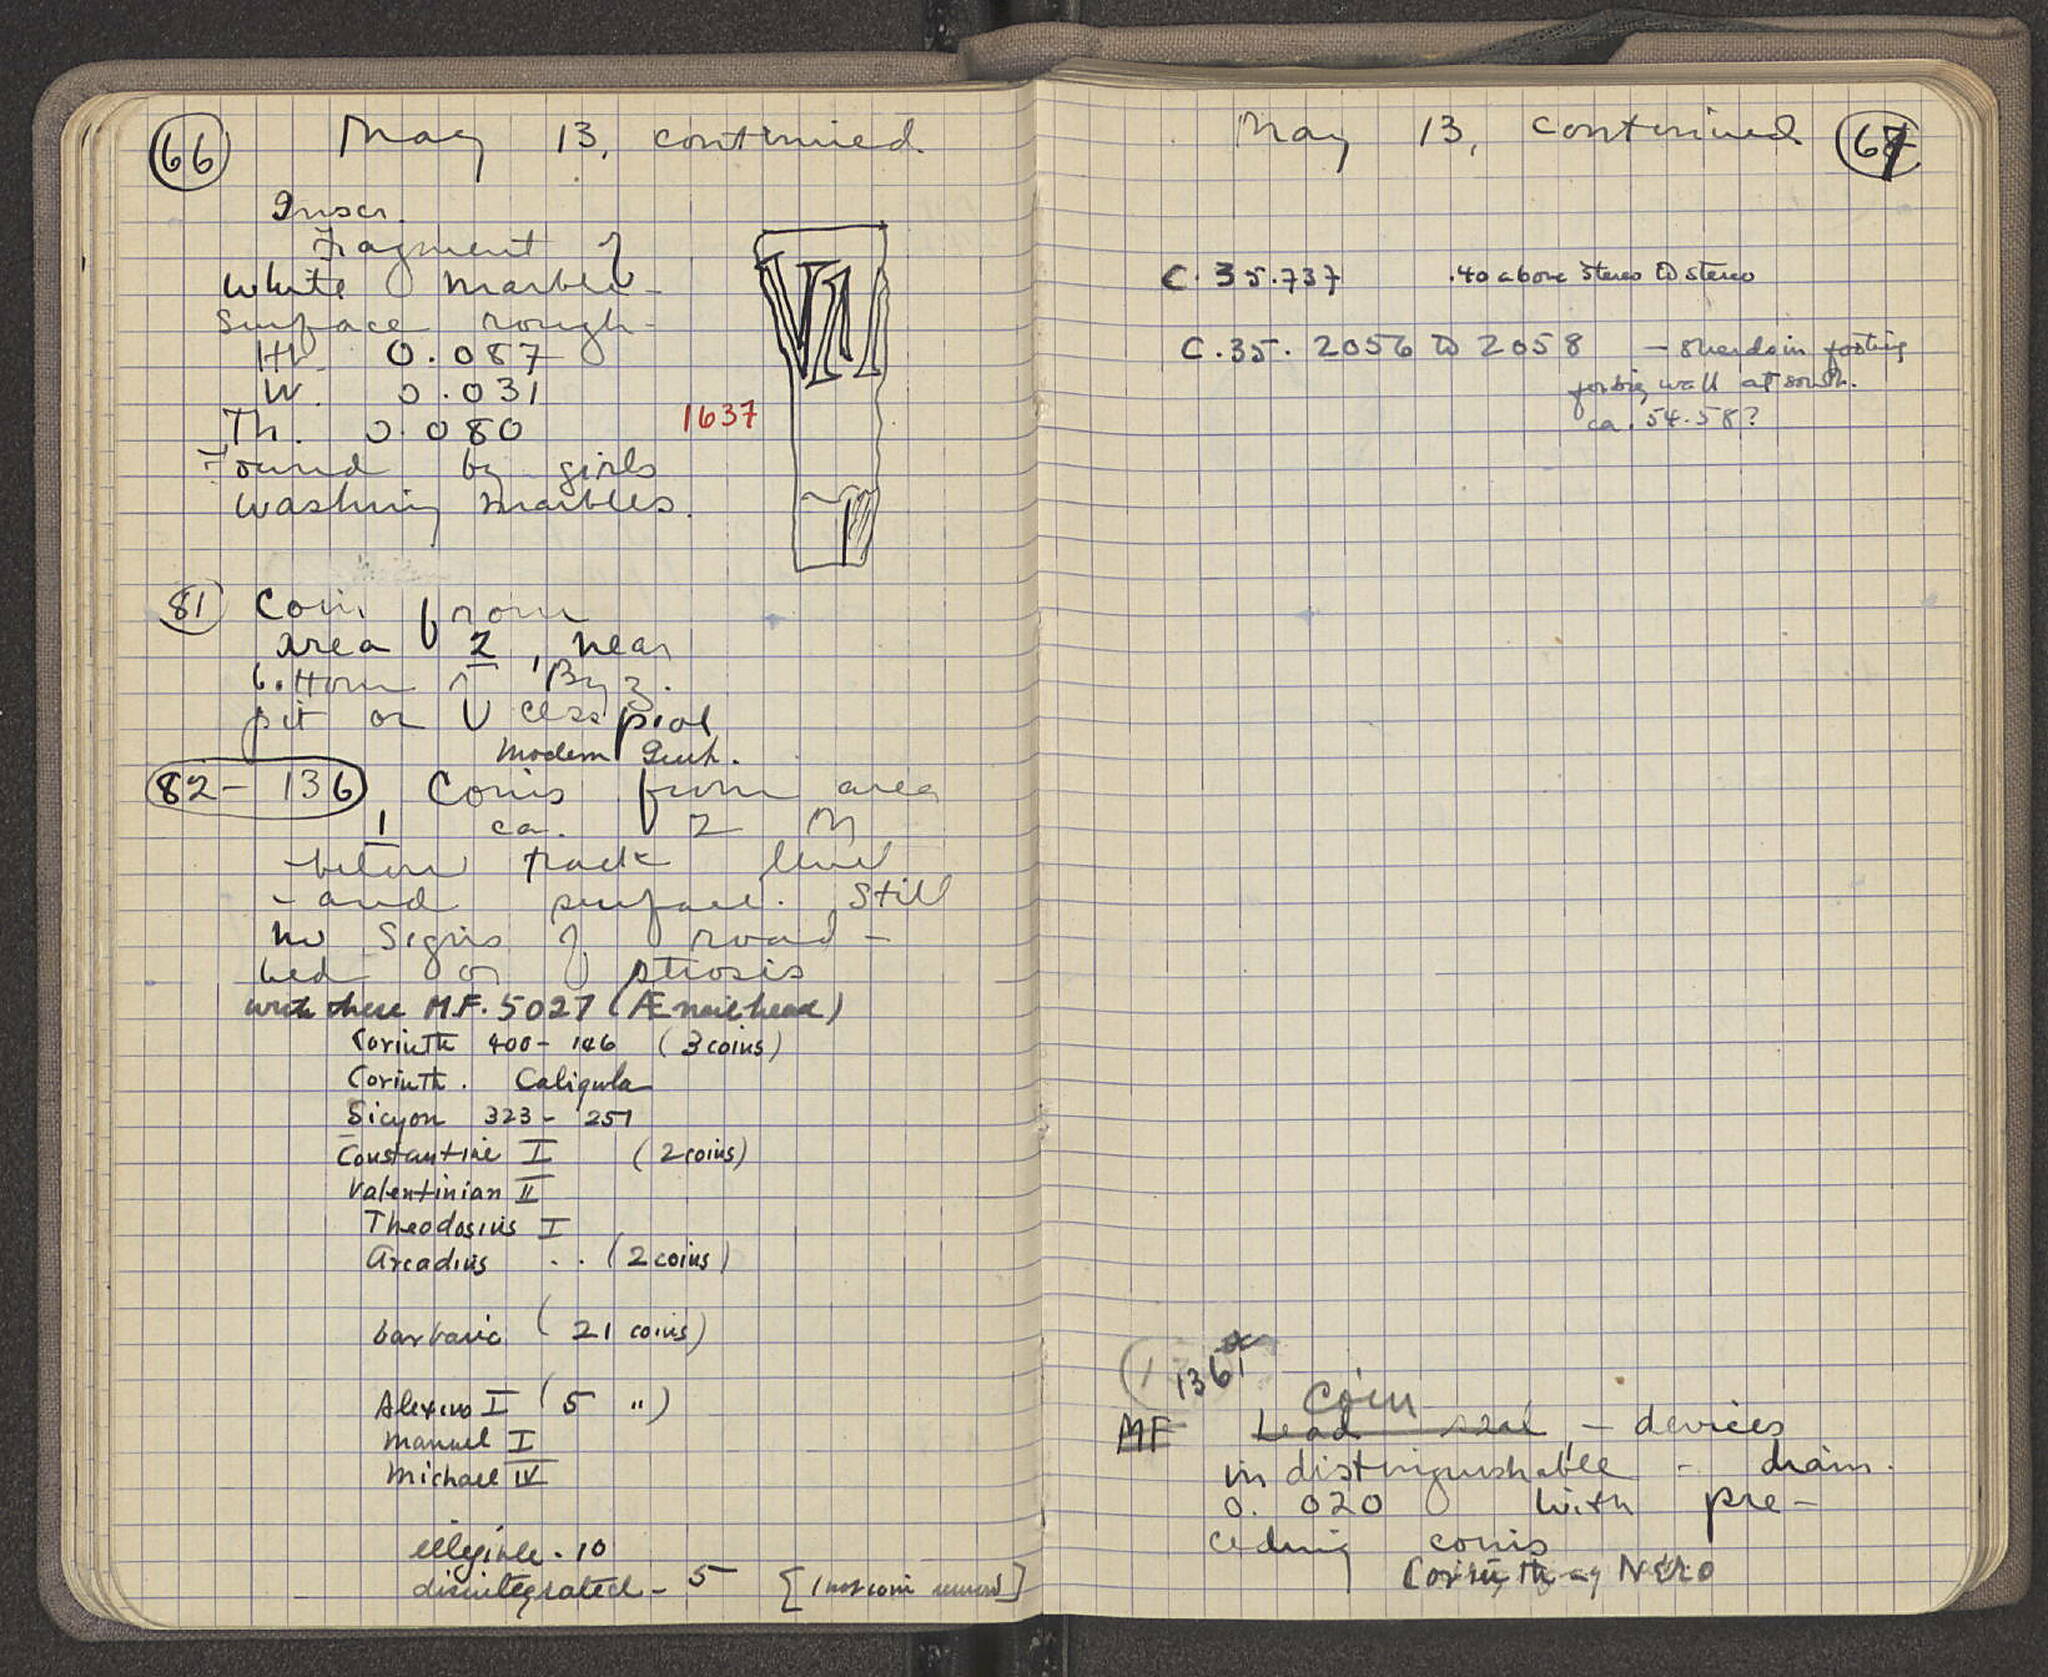 66 May 13, continued.
Inscr.
Fragment of
white marble -
surface rough -
Ht. 0.087
W. 0.031
Th. 0.080
1637
Found by girls
washing marbles.
81 Coin from
area 2, near
bottom of Byz.
pit or cess pool
Modern
82 - 136, Coins from area
1 ca. 2 M
below track level
and surface. Still
no signs of road-
bed or strosis
with these M.F. 5027 (Æ nail head)
Corinth 400 - 146 (3 coins)
Corinth. Caligula
Sicyon 323 - 251
Constantine I (2 coins)
Valentinian II
Theodosius I
Arcadius . . (2 coins)
barbaric (21 coins)
Alexius I (5 ")
Manuel I
Michael IV
illegible - 10
disintegrated - 5 [1 not coin removed]
May 13, continued 67
C. 35.737 .40 above stereo to stereo
C. 35. 2056 to 2058 - sherds in footing
for big wall at south.
ca. 54-58?
136a
Coin
MF Lead seal, - devices
indistinguishable - diam.
0.020 with pre-
ceding coins
Corinth - Nero